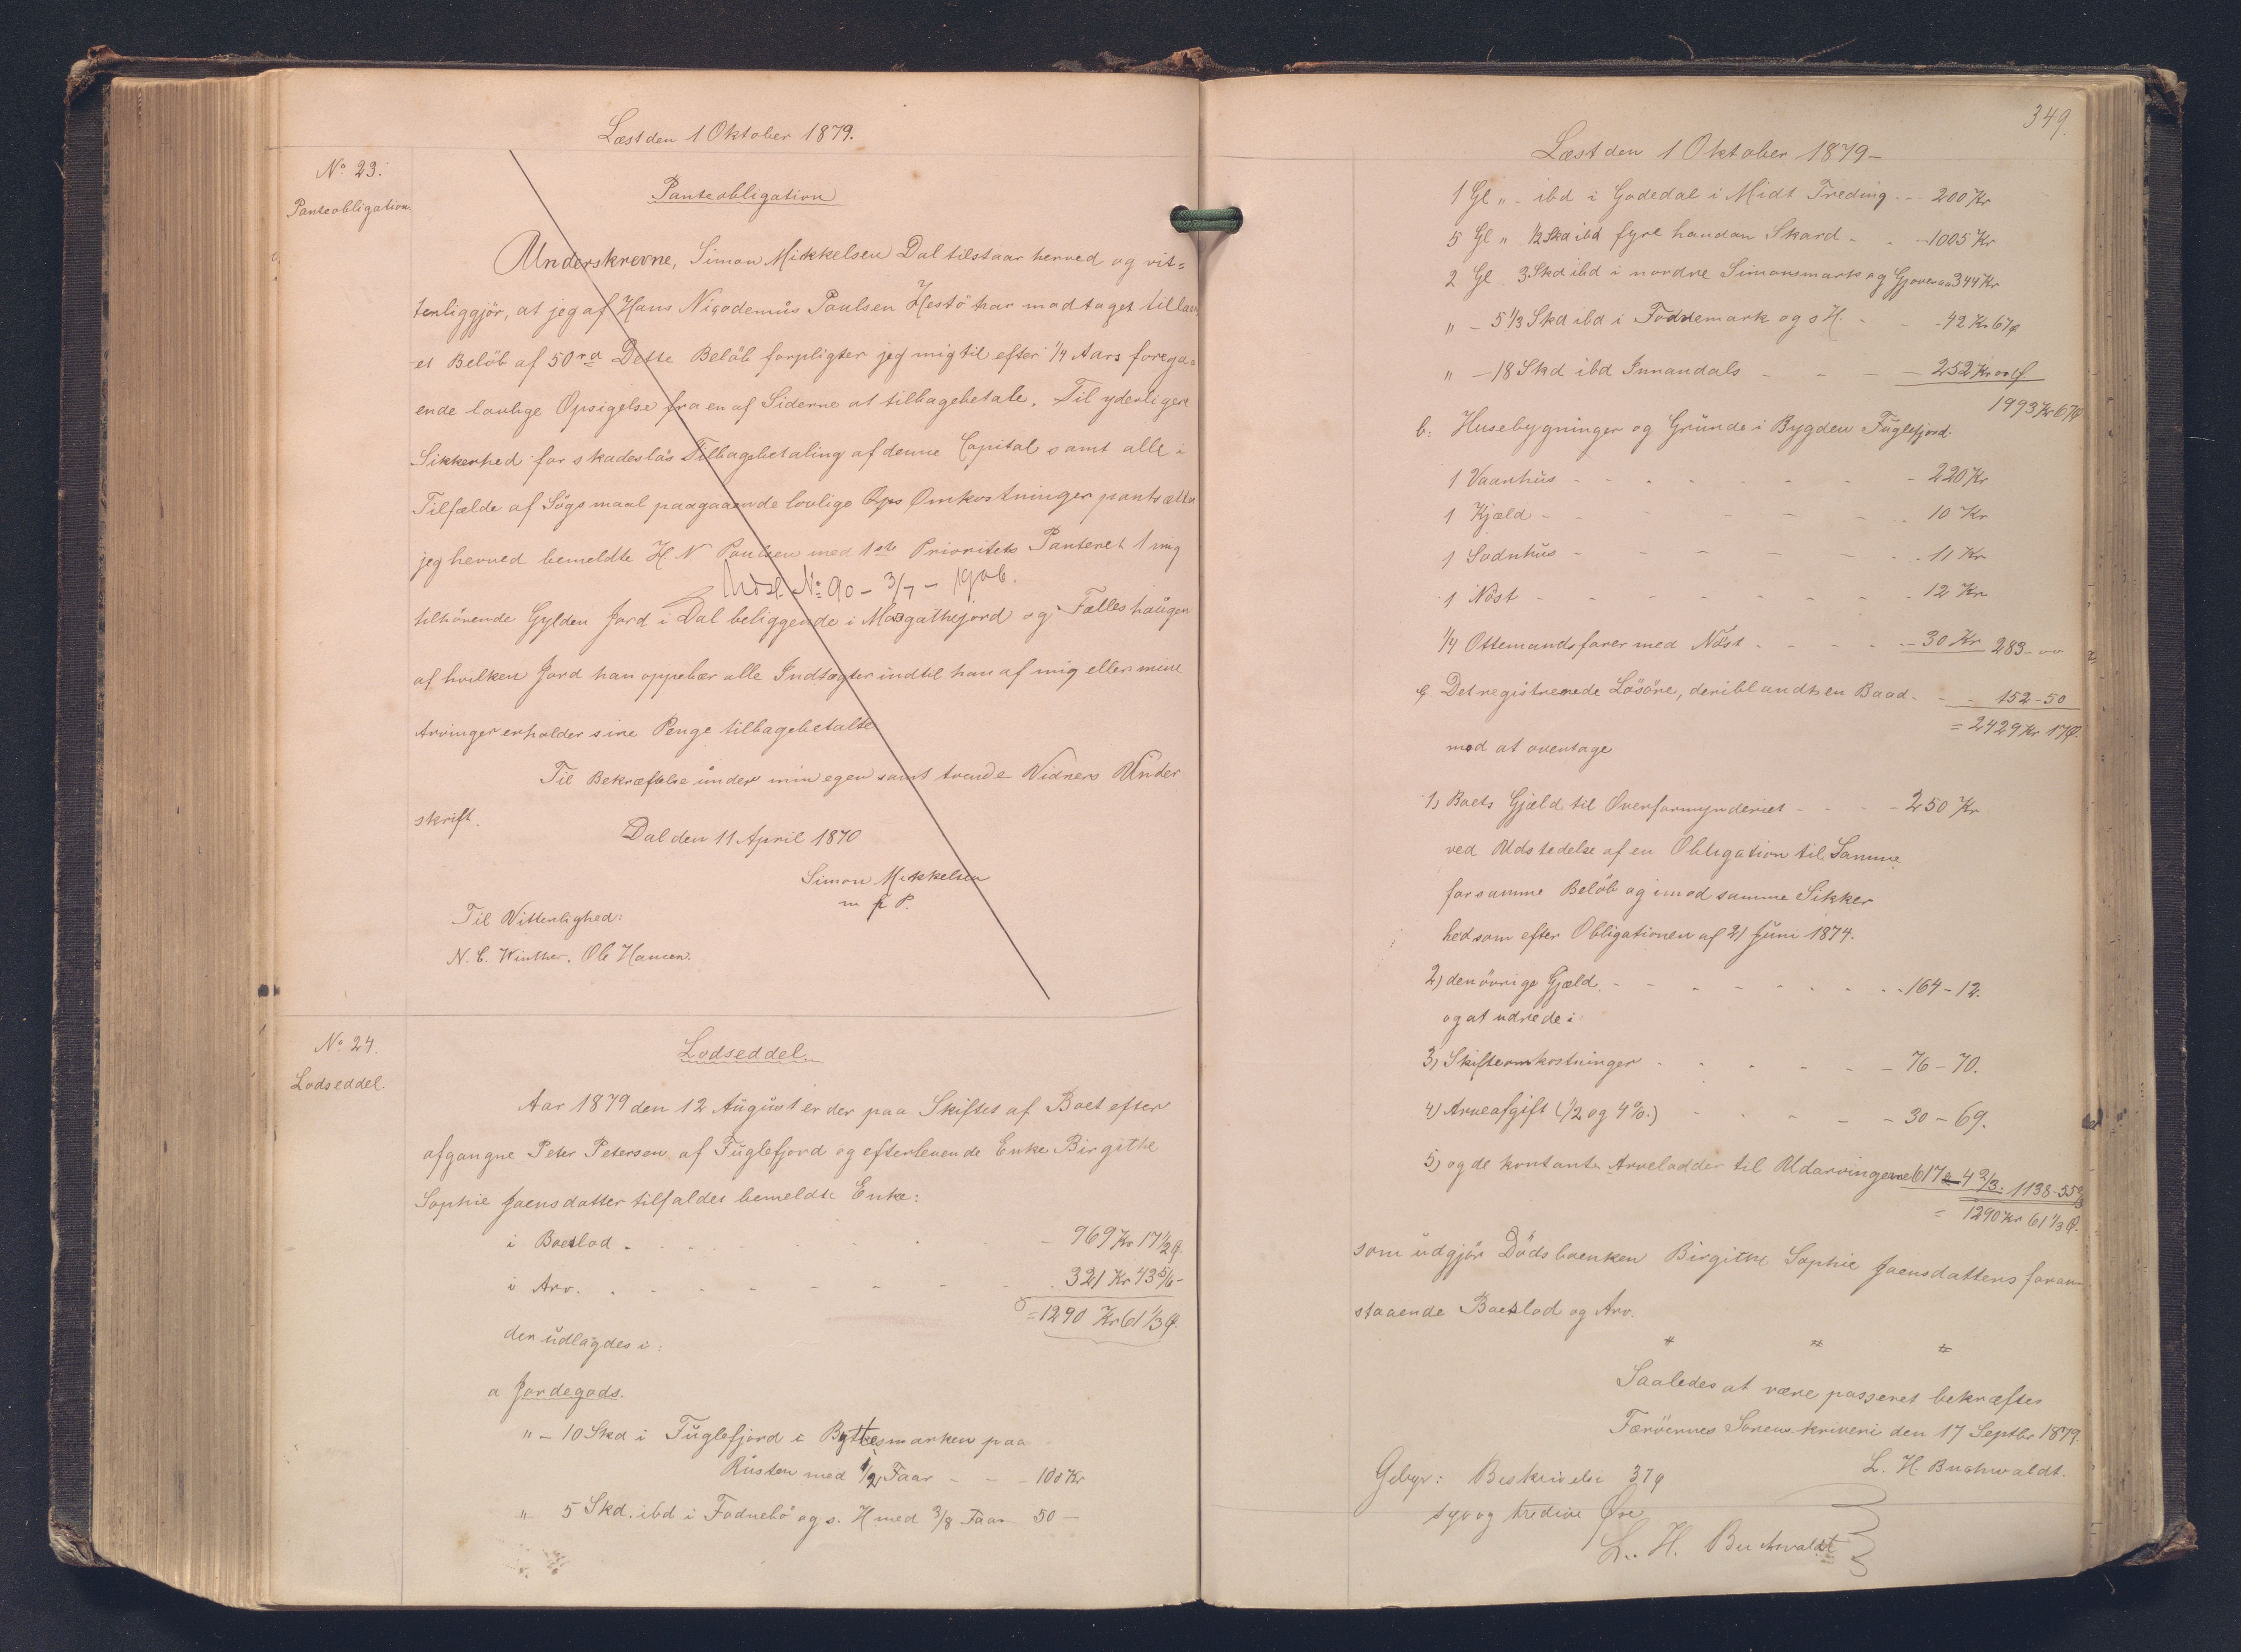 Læst den 1 Oktober 1879.
No 23.
Panteobligation.
Panteobligation
Underskrevne, Simon Mikkelsen Dal tilstaar herved og vit=
tenliggjör, at jeg af Hans Nicodemus Poulsen Hestö har modtaget tillaan
et Belöb af 50 rd Dette Belöb forpligter jeg mig til efter 1/4 Aars forega=
ende lovlige Opsigelse fra en af Siderne at tilbagebetale. Til yderligere
Sikkerhed for skadeslös Tilbagebetaling af denne Capital samt alle i
Tilfælde af Sögsmaal paagaaende lovlige Ops Omkostninger pantsætter
jeg herved bemeldte H. N Poulsen med 1ste Prioritets Panteret 1 mig
Udsl. No 90 - 3/7 - 1906.
tilhörende Gylden Jord i Dal beliggende i Morgathejord og Fælleshaugen
af hvilken Jord han oppebær alle Indtægter indtil han af mig eller mine
Arvinger erholder sine Penge tilbagebetalte
Til Bekræftelse under min egen samt tvende Vidners Under
skrift.
Dal den 11 April 1870
Simon Mikkelsen
m f P.
Til Vitterlighed:
N. C. Winther. Ole Hansen.
No 24.
Lodseddel.
Lodseddel
Aar 1879 den 12 August er der paa Skiftet af Boet efter
afgangne Peter Petersen af Fuglefjord og efterlevende Enke Birgithe
Sophie Joensdatter tilfaldet bemeldte Enke:
i Boeslod - 969 Kr 17 1/2 Ø.
i Arv. - 321 Kr 43 5/6 -
= 1290 Kr 61 1/3 Ø.
der udlagdes i:
a Jordegods.
" - 10 Skd i Fuglefjord i Byttesmarken paa
Rusten med 1/2 Faar - - - 100 Kr
" 5 Skd. ibd i Fodnebö og s. H med 3/8 Faar 50 -
349.
Læst den 1 Oktober 1879 -
1 Gl " - ibd i Godedal i Midt Treding - - 200 Kr
5 Gl " 1/2 Skd ibd fyre handan Skard - - 1005 Kr
2 Gl - 3 Skd ibd i nordre Simonsmark og Gjoveraa 344 Kr
" - 5 1/3 Skd ibd i Fodnemark og s H. - - 42 Kr 67 Ø
" - 18 Skd ibd Innandals - - - - 252 Kr oo Ø
1993 Kr 67 Ø
b: Husebygninger og Grunde i Bygden Fuglefjord:
1 Vaanhus - 220 Kr
1 Kjæld - 10 Kr
1 Sodnhus - 11 Kr
1 Nöst - 12 Kr
1/4 Ottemandsfarer med Nöst - 30 Kr 283 - oo
c Det registrerede Lösöre, deriblandt en Baad - - - 152 - 50
= 2429 Kr 17 Ø.
mod at overtage
1) Boets Gjæld til Overformynderiet - - - 250 Kr
ved Udstedelse af en Obligation til Samme
for samme Belöb og imod samme Sikker
hed som efter Obligationen af 21 Juni 1874.
2) den övrige Gjæld. - 164 - 12.
og at udrede:
3) Skifteomkostninger - 76 - 70.
4) Arveafgift (1/2 og 4%.) - 30 - 69.
5) og de kontante Arvelodder til Udarvingerne 617 - 4 2/3: 1138 - 55 2/3
= 1290 Kr 61 1/3 Ø.
som udgjör Dödsboenken Birgithe Sophie Joensdatters foran
staaende Boeslod og Arv.
Saaledes at være passeret bekræftes
Færöernes Sorenskriveri den 17 Septbr 1879.
L. H. Buchwaldt.
Gebyr: Beskrivelse 37 Ø
syv og tredive Øre
L. H. Buchwaldt